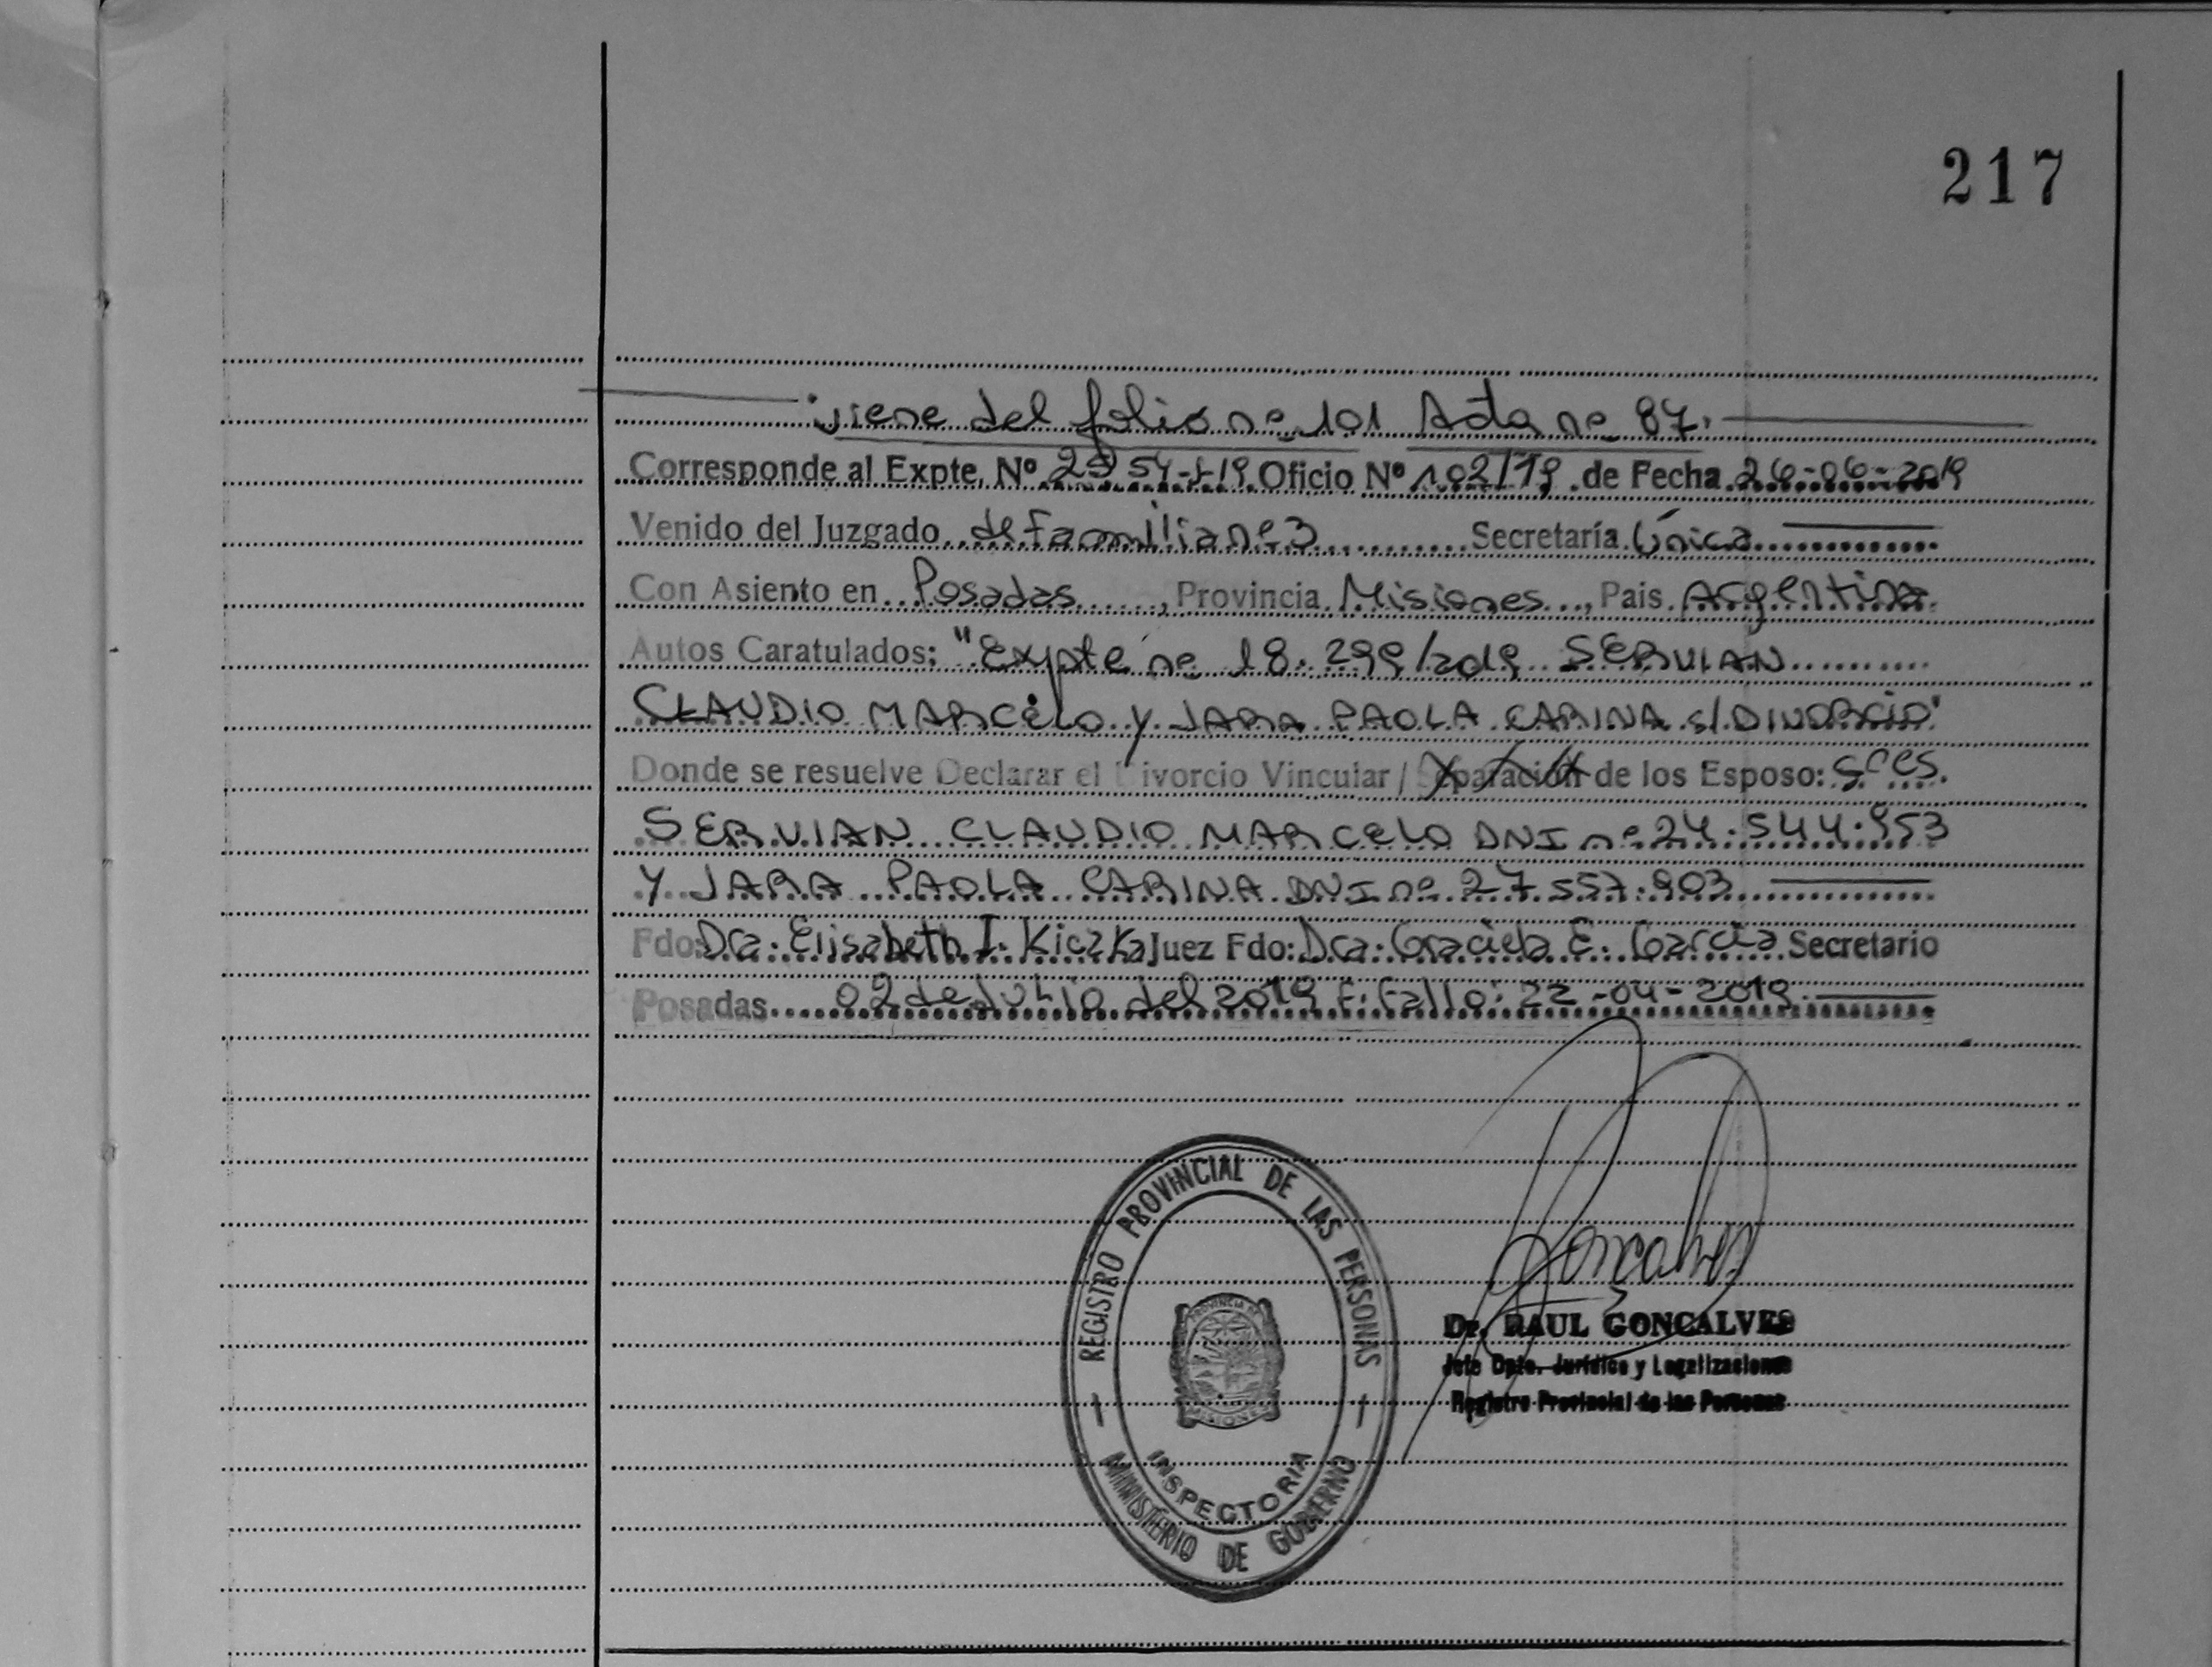 217
viene del folio nº 101 Acta nº 87.
Corresponde al Expte. Nº 2954-J-19 Oficio Nº 102/19 de Fecha 26-06-2019
Venido del Juzgado de Familia nº 3 Secretaría Única
Con Asiento en Posadas, Provincia Misiones, Pais Argentina
Autos Caratulados: "Expte nº 18.299/2019 SERVIAN
CLAUDIO MARCELO Y JARA PAOLA CARINA s/ DIVORCIO"
Donde se resuelve Declarar el Divorcio Vincular / Separación de los Esposo: Sres.
SERVIAN CLAUDIO MARCELO DNI nº 24.544.953
Y JARA PAOLA CARINA DNI nº 27.557.903
Fdo: Dra. Elisabeth I. Kiczka Juez Fdo: Dra. Graciela E. García Secretario
Posadas 02 de Julio del 2019 F. Fallo: 22-04-2019.
REGISTRO PROVINCIAL DE LAS PERSONAS
PROVINCIA DE
MISIONES
INSPECTORIA
MINISTERIO DE GOBIERNO
Goncalves
Dr. RAUL GONCALVES
Jefe Dpto. Jurídico y Legalizaciones
Registro Provincial de las Personas